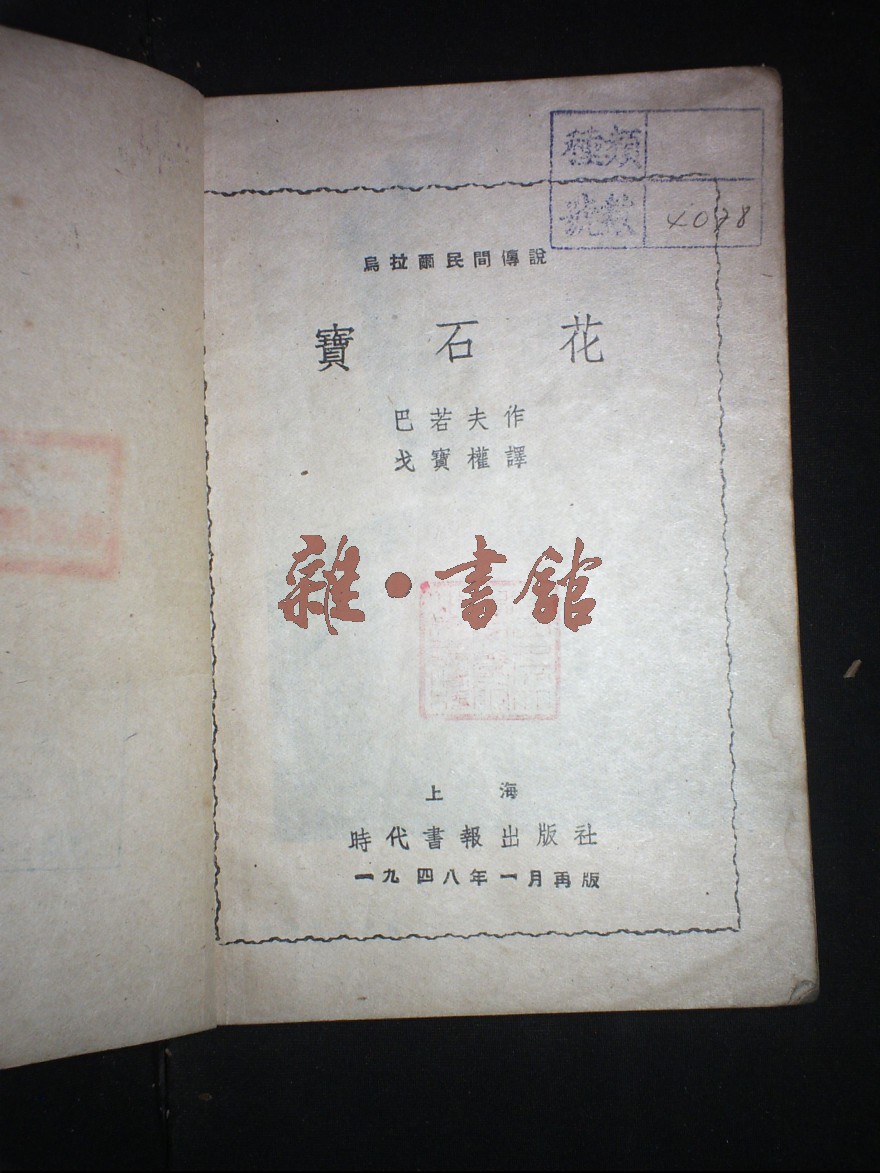 種類
號數 4098
烏拉爾民間傳說
寶石花
巴若夫作
戈寶權譯
雜·書館
上海
時代書報出版社
一九四八年一月再版